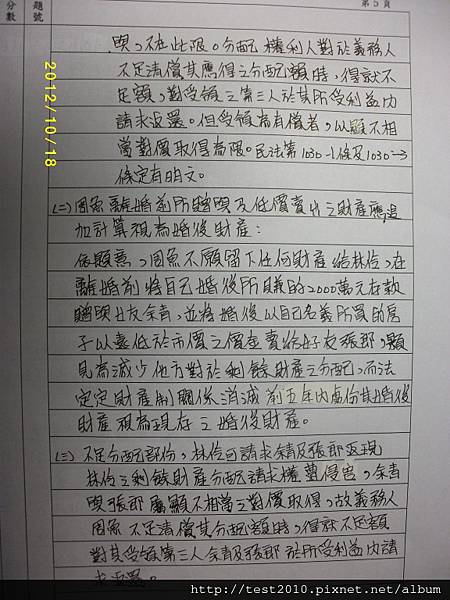 第5頁
題號
分數
與，不在此限。分配權利人對於義務人
不足清償其應得之分配額時，得就不
足額，對受領之第三人於其所受利益內
請求返還。但受領為有償者，以顯不相
當對價取得為限。民法第1030-1條及1030-3
條定有明文。
(二)周魚離婚前所贈與及低價賣出之財產應追
加計算視為婚後財產：
依題意，周魚不願留下任何財產給林伶，在
離婚前將自己婚後所賺的2000萬元存款
贈與女友余青，並將婚後以自己名義所買的房
子以遠低於市價之價在賣給好友張郎，顯
見為減少他方對於剩餘財產之分配，而法
定財產制關係消滅前五年內處份其婚後
財產視為現存之婚後財產。
(三)不足分配部份，林伶可請求余青及張郎返現
林伶之剩餘財產分配請求權蒙侵害，余青
與張郎屬顯不相當之對價取得，故義務人
周魚不足清償其分配額時，得就不足額
對其受領第三人余青及張郎於所受利益內請
求返還。
2012/10/18
http://test2010.pixnet.net/album